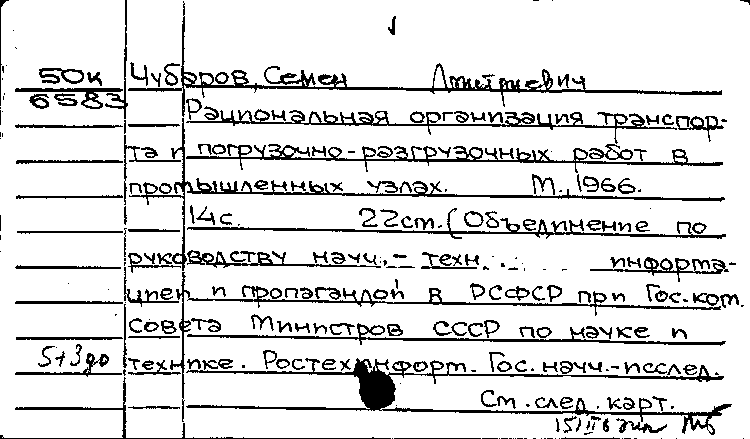 50к Чубаров, Семен Дмитриевич
6583
Рациональная организация транспор-
та и погрузочно-разгрузочных работ в
промышленных узлах. М., 1966.
14с. 22см. (Объединение по
руководству науч.-техн. информа-
цией и пропагандой в РСФСР при Гос. ком.
совета Министров СССР по науке и
технике. Ростехинформ. Гос. науч.-исслед.
См. след. карт.